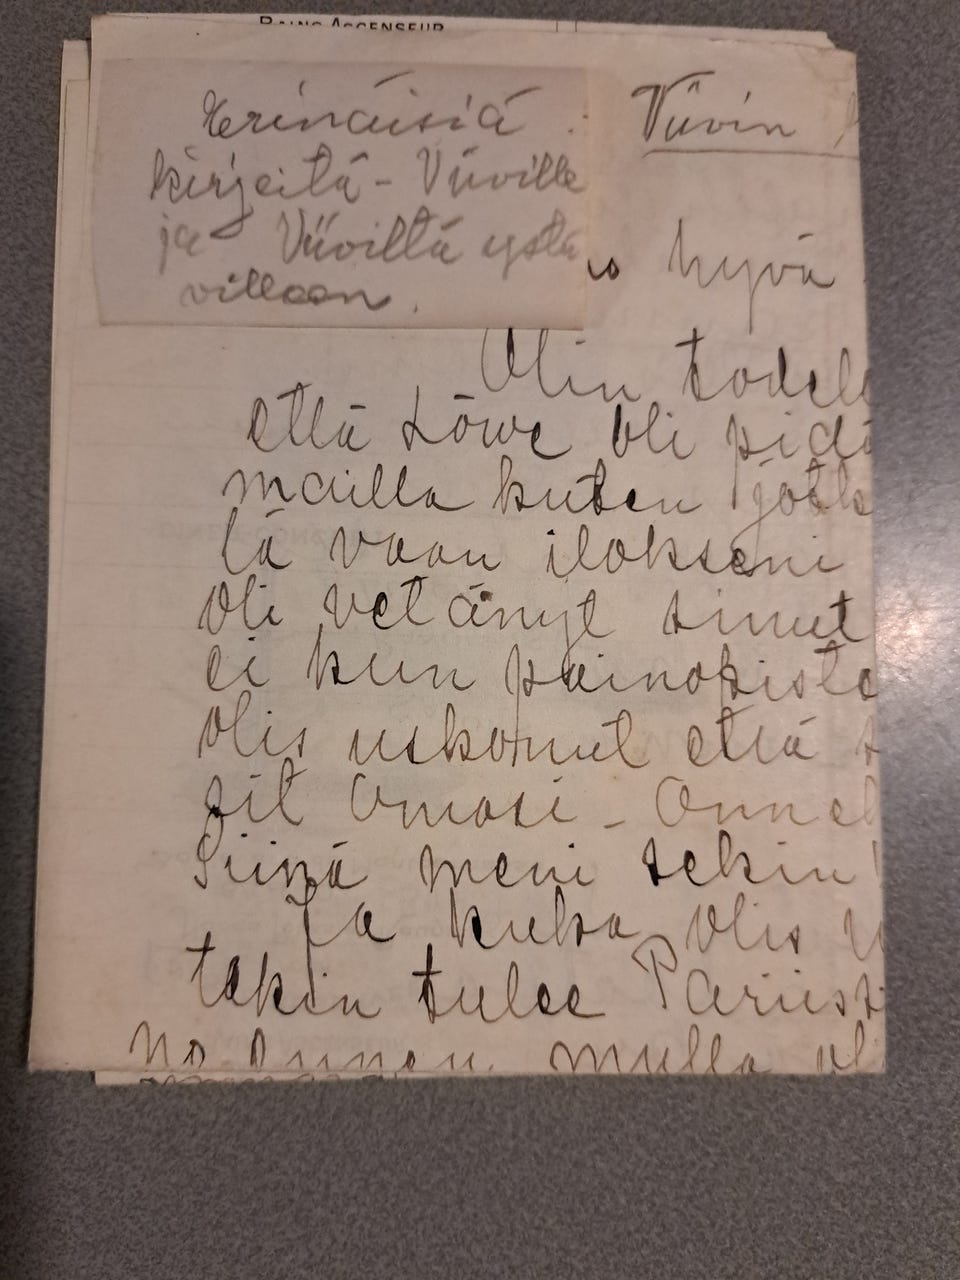 BAINS ASCENSEUR
Erinäisiä
kirjeitä - Viiville
ja Viiviltä ystä
villeen.
Viivin
hyvä
Olin todell
että Löwe oli pidä
mailla kuten jotk
tä vaan ilokseni
oli vetänyt sinut
ei kun painokista
olis uskonut että s
sit omasi - Onnek
Siinä meni sekin
Ja kuka olis u
takin tulee Pariist
mulla oli